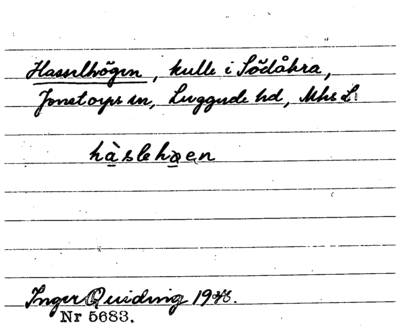 Hasselhögen, kulle i Södåkra,
Jonstorps sn, Luggude hd, Mhs L.
hàslehøen
Inger Quiding 1946.
Nr 5683.